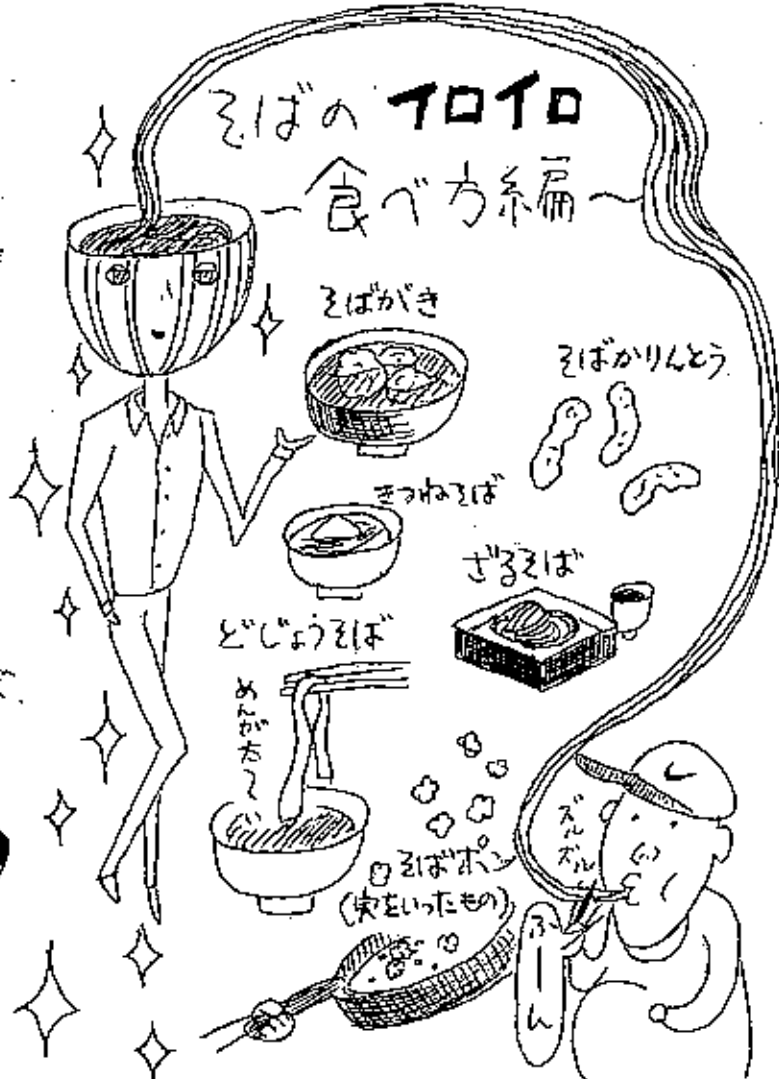 そばのイロイロ
〜食べ方編〜
そばがき
そばかりんとう
きつねそば
ざるそば
どじょうそば
めんが太〜い
そばポン
(実をいったもの)
ズルズル
ふーん